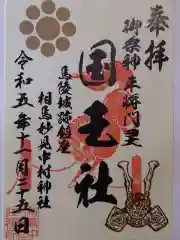 奉拝
御祭神 平将門
国王社
馬陵城跡鎮座
相馬妙見中村神社
令和五年十一月 五日